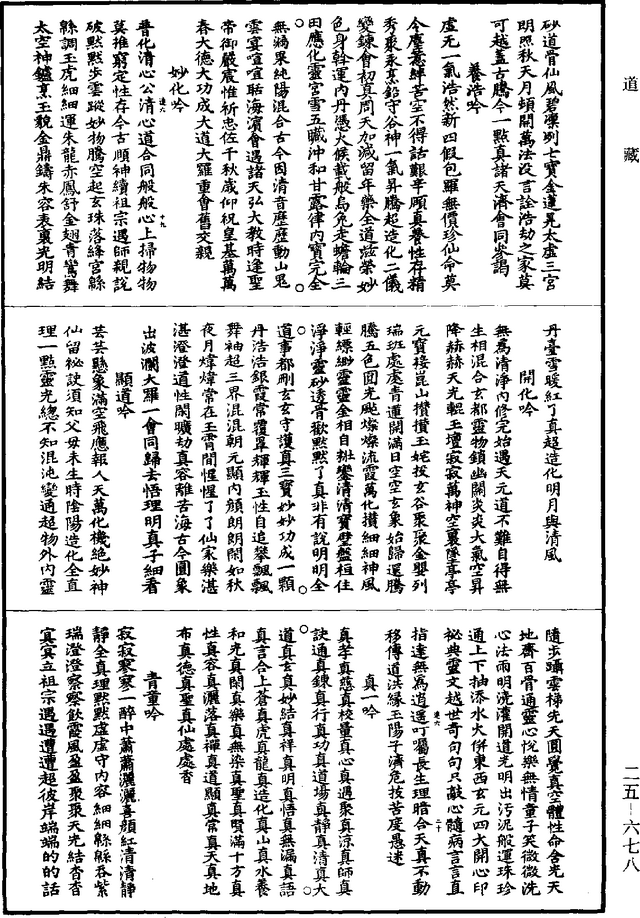 道藏
砂道骨仙風碧凜冽七寶金蓮晃太虛三宮
明照秋天月頓開萬法没言詮浩劫之家莫
可越蓋古騰今一點真諸天濟會同參謁
養浩吟
虛无一氣浩然新四假包羅無價珍仙命莫
今塵意絆苦空不得話艱辛頤真養性存精
秀聚永烹鉛守谷神一氣昇騰超造化二儀
變鍊會初真周天加減留年藥全道滋榮妙
色身斡運內丹憑火候載般烏兔走蟾輪三
田應化靈宮雪五臟沖和甘露律內寶完全
無禍果純陽混合古今因清音歷歷動山鬼
雲宴喧喧聒海濱會遇諸天弘大教時逢聖
帝御嚴宸惟祈忠佐千秋歲仰祝皇基萬萬
春大德大功成大道大羅重會舊交親
妙化吟
普化清心公清心道合同般般心上掃物物
莫推窮定性存今古順神續祖宗遇師親說
破默默步雲蹤妙物騰空起玄珠落絳宮緜
緜調玉虎細細運朱龍赤鳳舒金翅青鸞舞
太空神鑪烹玉貌金鼎鑄朱容表裏光明結
丹臺雪暖紅了真超造化明月與清風
開化吟
無為清淨內修完始遇天元道不難自得無
生相混合玄都靈物鎖幽關炎炎大氣空昇
降赫赫天光輥玉壇寂寂萬神空裏墜亭亭
元寶接崑山攢攢玉姹拔玄谷聚聚金嬰列
瑞班處處青蓮開滿日空空玄象始歸還騰
騰五色團光颭燦燦流霞萬化攢細細神風
輕縹緲靈靈金相自㘰鑾清清寶璧盤桓住
淨淨靈砂透骨歡默默了真非有說明明全
道事都剛玄玄守護真三寶妙妙功成一顆
丹浩浩銀霞常覆罩輝輝玉性自追攀飄飄
舞袖超三界混混朝元顯內顏朗朗開如秋
夜月煒煒常在玉霄間惺惺了了仙家樂湛
湛澄澄道性閑曠劫真容離苦海古今圓象
出波瀾大羅一會同歸去悟理明真子細看
顯道吟
芸芸懸象滿空飛應報人天萬化機絕妙神
仙留祕訣須知父母未生時陰陽造化全直
理一點靈光總不知混沌變通超物外內靈
隨步躡雲梯先天圓覺真空體性命含光天
地齊百骨通靈心悅樂無情童子笑微微洗
心法雨明澆灌開道光明出污泥般運珠珍
通上下抽添水大併東西玄元四大開心印
祕典靈文越世奇句句只敲心髓病言言直
指達無為逍遥叮囑長生理暗合天真不動
移傳道洪緣玉陽子濟危拔苦度愚迷
真一吟
真孝真慈真校量真心真遇聚真涼真師真
訣通真鍊真行真功真道場真靜真清真大
道真玄真妙結真祥真明真悟真無漏真語
真言合上蒼真虎真龍真造化真山真水養
和光真閑真樂真無染真聖真賢滿十方真
性真容真灑落真禪真道顯真常真天真地
布真德真聖真仙處處香
青童吟
寂寂寥寥一醉中蕭蕭灑灑喜顏紅清清靜
靜全真理默默虛虛守內容細細緜緜吞紫
瑞澄澄察察飲霞風盈盈聚聚天光結杳杳
冥冥立祖宗遇遇遭遭超彼岸端端的的話
二五-六七八